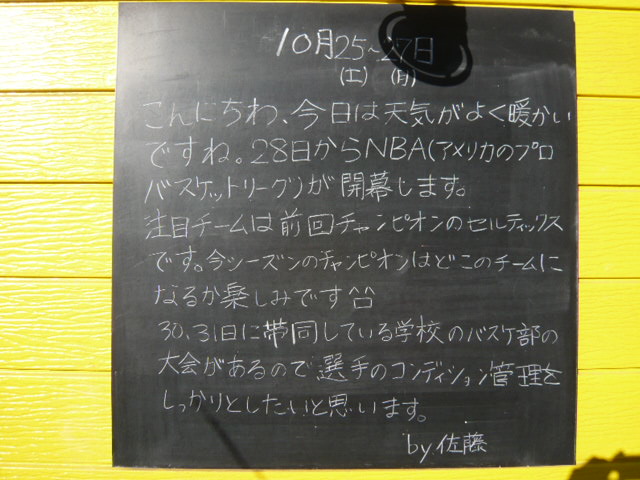 10月25~27日
(土) (月)
こんにちわ、今日は天気がよく暖かい
ですね。28日からNBA(アメリカのプロ
バスケットリーグ)が開幕します。
注目チームは前回チャンピオンのセルティックス
です。今シーズンのチャンピオンはどこのチームに
なるか楽しみです^^
30,31日に帯同している学校のバスケ部の
大会があるので選手のコンディション管理を
しっかりとしたいと思います。
by 佐藤